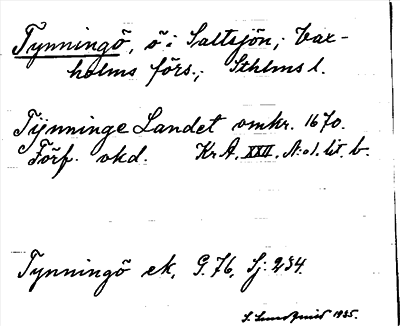 Tynningö, ö i Saltsjön; Vax-
holms förs.; Sthlms l.
Tÿnninge Landet omkr. 1670.
Förf. okd. KrA. XXII. N:o 1. lit. b.
Tynningö ek. G. 76, Sj: 234.
S. 1935.